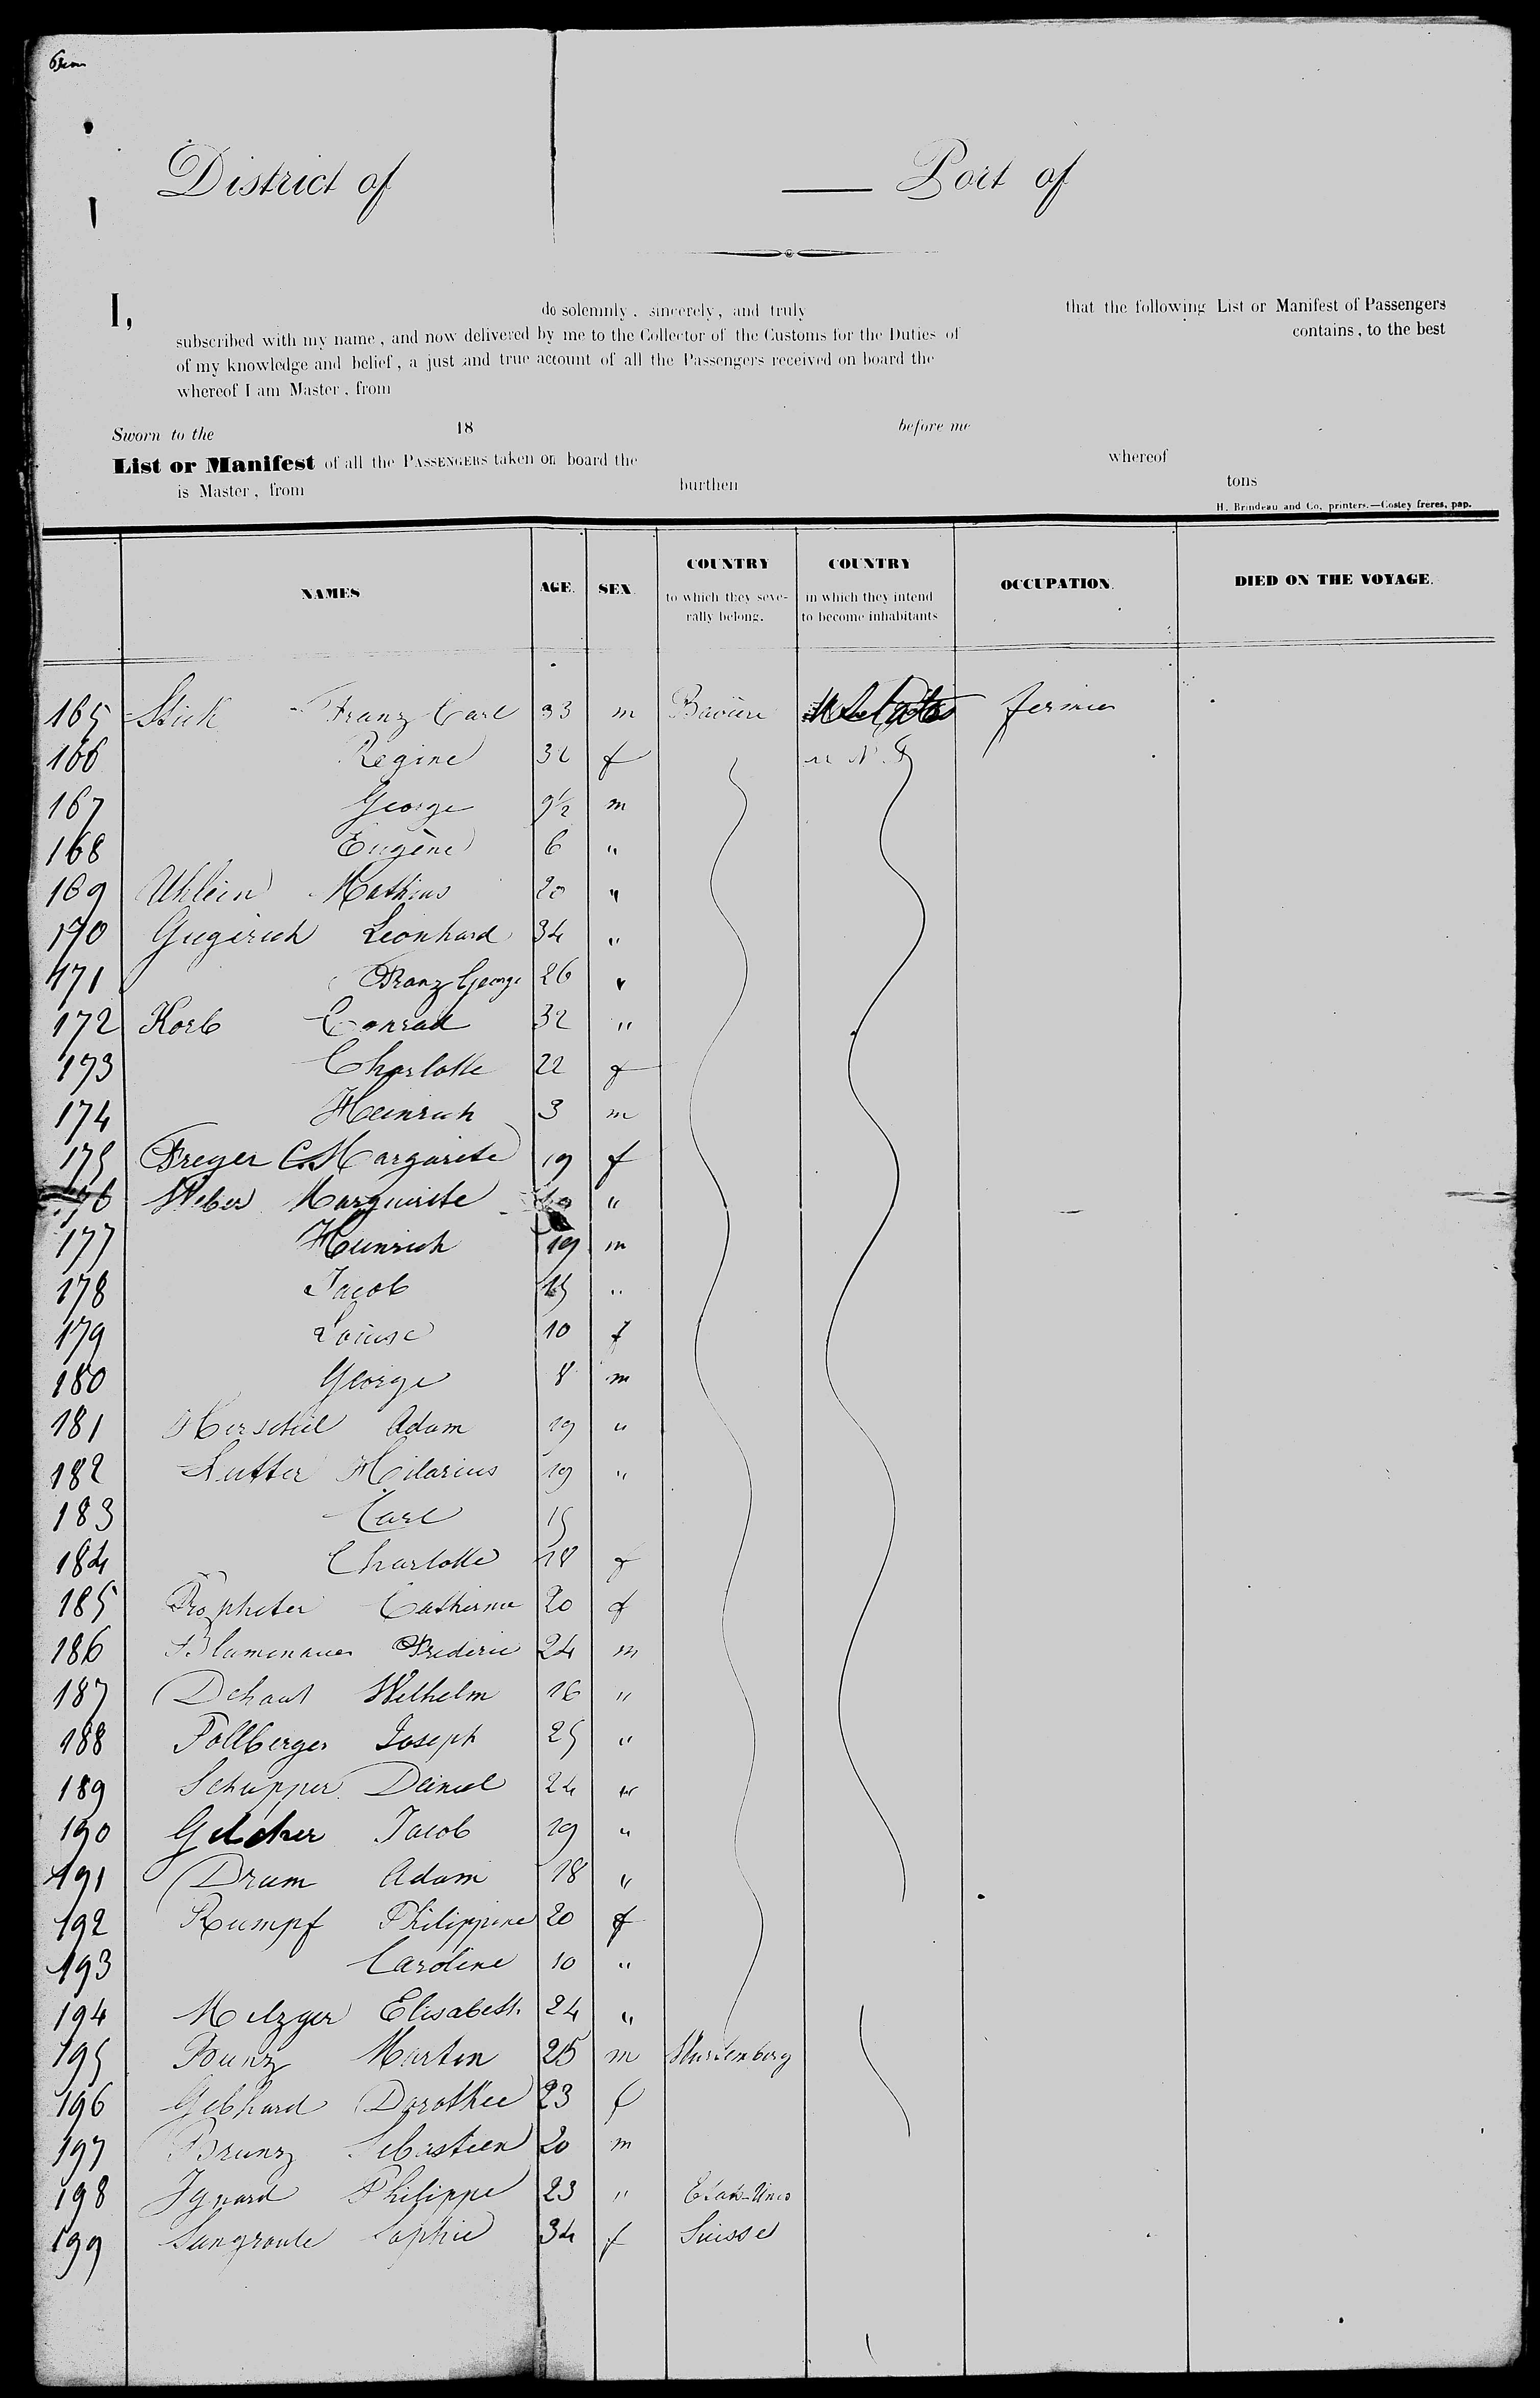 District of — Port of
I, do solemnly, sincerely, and truly that the following List or Manifest of Passengers
subscribed with my name, and now delivered by me to the Collector of the Customs for the Duties of contains, to the best
of my knowledge and belief, a just and true account of all the Passengers received on board the
whereof I am Master, from
Sworn to the 18 before me
List or Manifest of all the PASSENGERS taken on board the whereof
is Master, from burthen tons
H. Brindeau and Co, printers.—Costey freres, pap.
NAMES AGE. SEX. COUNTRY to which they severally belong. COUNTRY in which they intend to become inhabitants OCCUPATION. DIED ON THE VOYAGE.
165 Stick Franz Carl 33 m Bavière U States
166 Regine 32 f
167 George 9½ m
168 Eugène 6 "
169 Uhlein Mathias 20 "
170 Gugerich Leonhard 34 "
171 Franz George 26 "
172 Korb Conrad 32 "
173 Charlotte 22 f
174 Heinrich 3 m
175 Freyer C. Margarite 19 f
176 Weber Marguerite "
177 Heinrich 19 m
178 Jacob 15 "
179 Louise 10 f
180 George 8 m
181 Herschel Adam 19 "
182 Sutter Hilarius 19 "
183 Carl 15
184 Charlotte 18 f
185 Propheter Catherine 20 f
186 Blumenauer Frederic 24 m
187 Dehaut Wilhelm 16 "
188 Follberger Joseph 25 "
189 Schupper Deinel 24 "
190 Gilcher Jacob 19 "
191 Drum Adam 18 "
192 Rumpf Philippine 20 f
193 Caroline 10 "
194 Metzger Elisabeth 24 "
195 Bunz Martin 25 m Wurtemberg
196 Gebhard Dorothee 23 f
197 Brunz Sebastien 20 m
198 Philippe 23 " Etats-Unis
199 Sophie 34 f Suisse